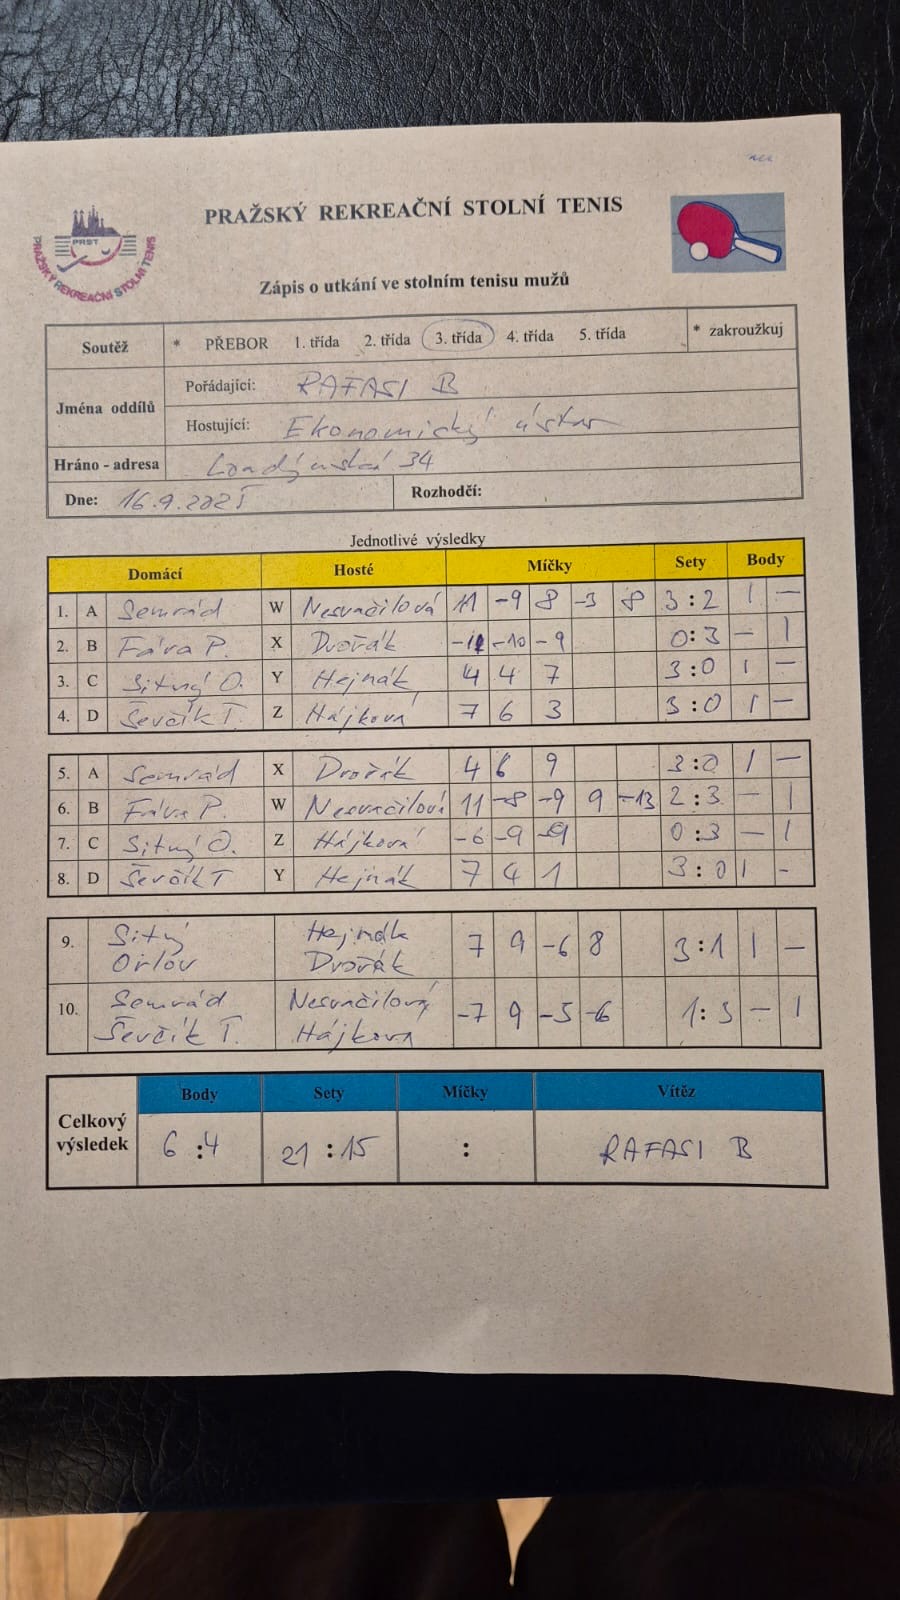 PRAŽSKÝ REKREAČNÍ STOLNÍ TENIS
PRST
PRAŽSKÝ REKREAČNÍ STOLNÍ TENIS
Zápis o utkání ve stolním tenisu mužů
Soutěž * PŘEBOR 1. třída 2. třída 3. třída 4. třída 5. třída * zakroužkuj
Jména oddílů
Pořádající: RAFASI B
Hostující: Ekonomický ústav
Hráno - adresa Londýnská 34
Dne: 16.9.2025 Rozhodčí:
Jednotlivé výsledky
Domácí Hosté Míčky Sety Body
1. A Semrád W Nesvačilová 11 -9 8 -3 8 3:2 1 –
2. B Fáva P. X Dvořák -11 -10 -9 0:3 – 1
3. C Sitný O. Y Hejnák 4 4 7 3:0 1 –
4. D Ševčík T. Z Hájková 7 6 3 3:0 1 –
5. A Semrád X Dvořák 4 6 9 3:0 1 –
6. B Fáva P. W Nesvačilová 11 -8 -9 9 -13 2:3 – 1
7. C Sitný O. Z Hájková -6 -9 -9 0:3 – 1
8. D Ševčík T Y Hejnák 7 4 1 3:0 1 -
9. Sitný Hejnák 7 9 -6 8 3:1 1 –
Orlov Dvořák
10. Semrád Nesvačilová -7 9 -5 -6 1:3 – 1
Ševčík T. Hájkova
Celkový výsledek
Body Sety Míčky Vítěz
6:4 21:15 : RAFASI B